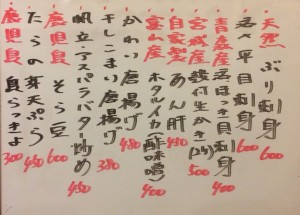 天然 ぶり刺身 600
活〆平目刺身 600
青森産 活ほっき貝刺身 400
宮城産 殻付生かき(2ヶ) 500
自家製 あん肝 480
富山産 ホタルイカ(酢味噌) 400
唐揚げ 480
干しこまい唐揚げ 380
帆立・アスパラバター炒め 450
鹿児島 そら豆 600
たらの芽天ぷら 450
鹿児島 島らっきょ 300